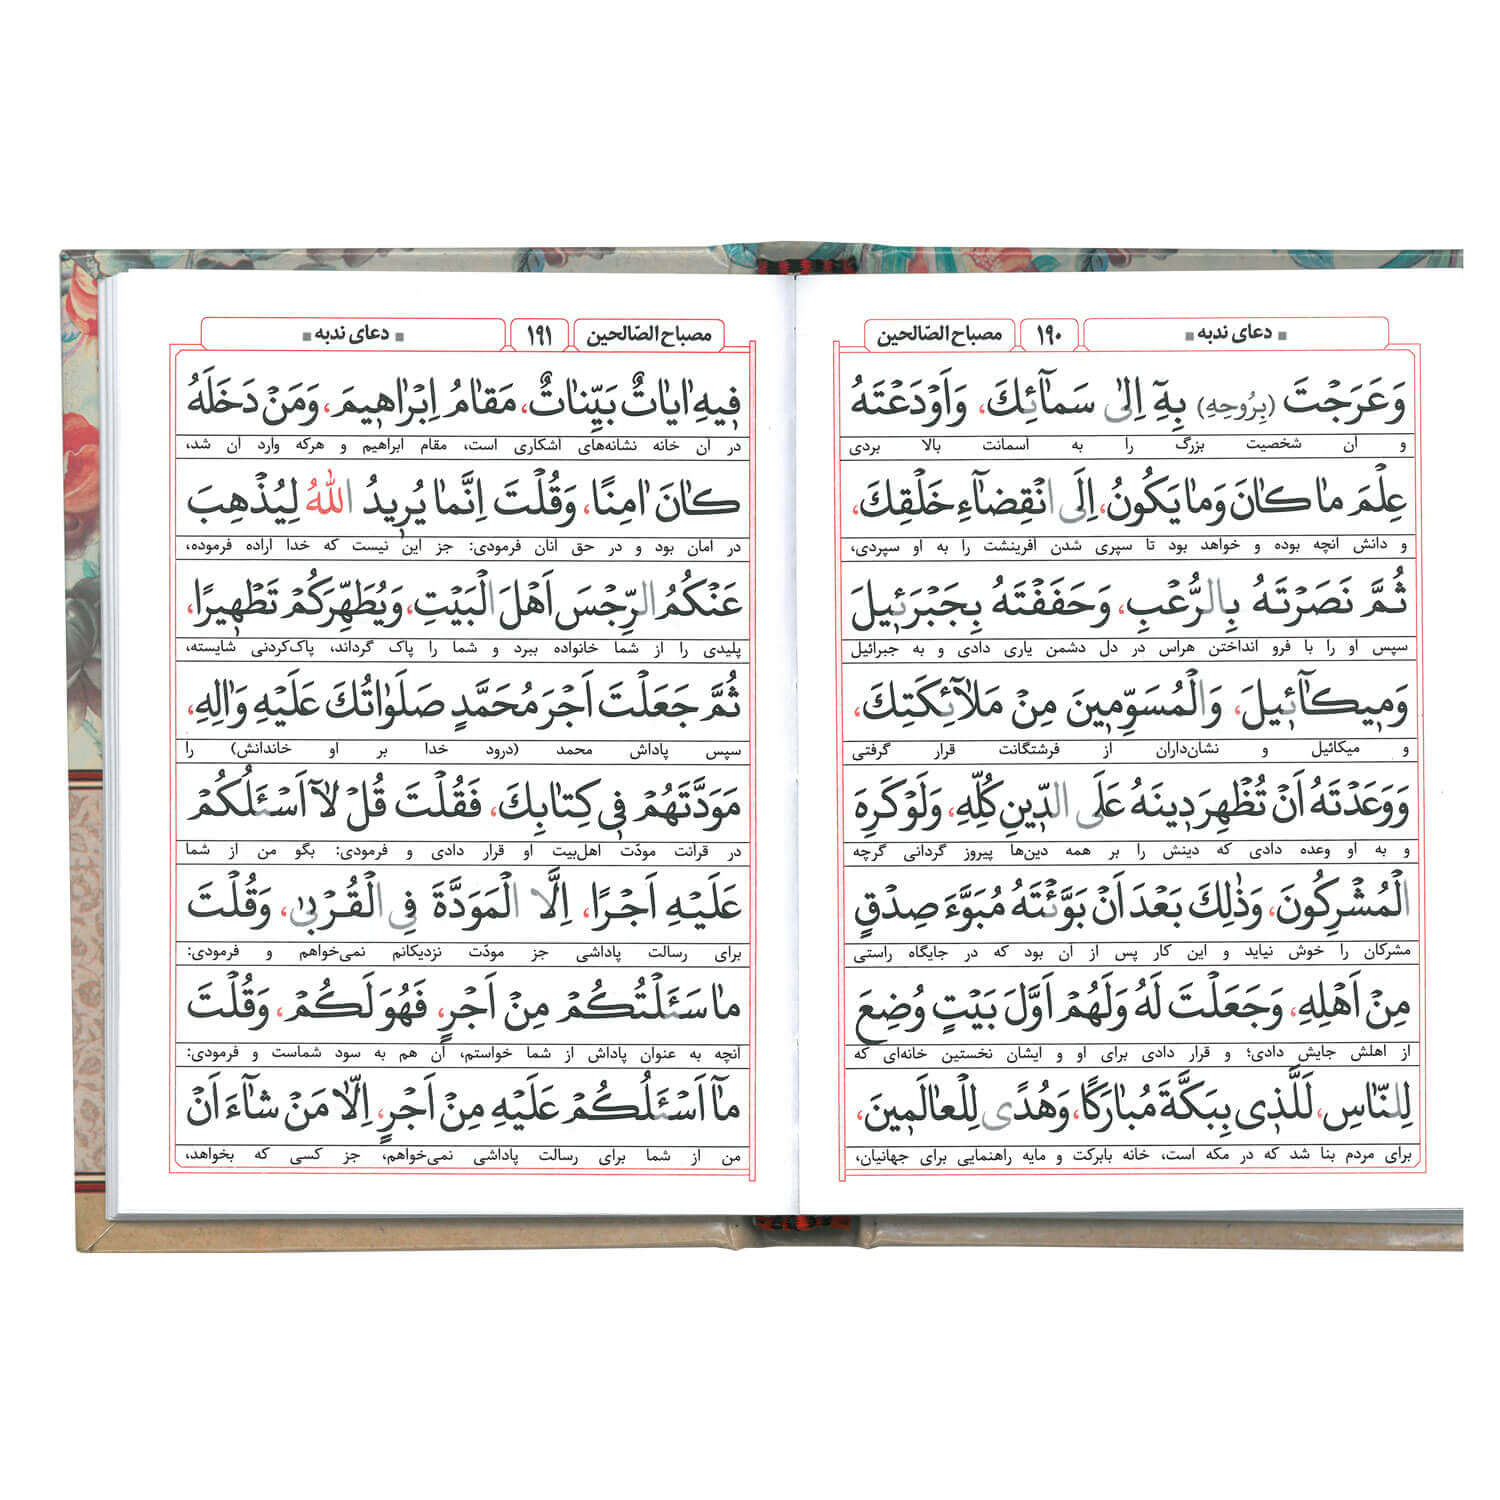 دعای ندبه ۱۹۰ مصباح الصّالحین
وَعَرَجْتَ (بِرُوحِهِ) بِهِٓ اِلىٰ سَمآئِكَ، وَاَوْدَعْتَهُ
و آن شخصیت بزرگ را به آسمانت بالا بردی
عِلْمَ ماكانَ وَمایَكُونُ، اِلَى انْقِضآءِ خَلْقِكَ،
و دانش آنچه بوده و خواهد بود تا سپری شدن آفرینشت را به او سپردی،
ثُمَّ نَصَرْتَهُ بِالرُّعْبِ، وَحَفَفْتَهُ بِجَبْرَئیلَ
سپس او را با فرو انداختن هراس در دل دشمن یاری دادی و به جبرائیل
وَمیكآئیلَ، وَالْمُسَوِّمینَ مِنْ مَلآئِكَتِكَ،
و میکائیل و نشان‌داران از فرشتگانت قرار گرفتی
وَوَعَدْتَهُ اَنْ تُظْهِرَ دینَهُ عَلَى الدّینِ كُلِّهِ، وَلَوْكَرِهَ
و به او وعده دادی که دینش را بر همه دین‌ها پیروز گردانی گرچه
الْمُشْرِكُونَ، وَذٰلِكَ بَعْدَ اَنْ بَوَّئْتَهُ مُبَوَّءَ صِدْقٍ
مشرکان را خوش نیاید و این کار پس از آن بود که در جایگاه راستی
مِنْ اَهْلِهِ، وَجَعَلْتَ لَهُ وَلَهُمْ اَوَّلَ بَیْتٍ وُضِعَ
از اهلش جایش دادی؛ و قرار دادی برای او و ایشان نخستین خانه‌ای که
لِلنّاسِ، لَلَّذی بِبَكَّةَ مُبارَكًا، وَهُدًى لِلْعالَمینَ،
برای مردم بنا شد که در مکه است، خانه بابرکت و مایه راهنمایی برای جهانیان،
دعای ندبه ۱۹۱ مصباح الصّالحین
فیهِ اٰیاتٌ بَیِّناتٌ، مَقامُ اِبْراهیمَ، وَمَنْ دَخَلَهُ
در آن خانه نشانه‌های آشکاری است، مقام ابراهیم و هرکه وارد آن شد،
كانَ اٰمِنًا، وَقُلْتَ اِنَّما یُریدُ اللهُ لِیُذْهِبَ
در امان بود و در حق آنان فرمودی: جز این نیست که خدا اراده فرموده،
عَنْكُمُ الرِّجْسَ اَهْلَ الْبَیْتِ، وَیُطَهِّرَكُمْ تَطْهیرًا،
پلیدی را از شما خانواده ببرد و شما را پاک گرداند، پاک‌کردنی شایسته،
ثُمَّ جَعَلْتَ اَجْرَ مُحَمَّدٍ صَلَواتُكَ عَلَیْهِ وَاٰلِهِ،
سپس پاداش محمد (درود خدا بر او خاندانش) را
مَوَدَّتَهُمْ فی كِتابِكَ، فَقُلْتَ قُلْ لآ اَسْئَلُكُمْ
در قرآنت مودّت اهل‌بیت او قرار دادی و فرمودی: بگو من از شما
عَلَیْهِ اَجْرًا، اِلَّا الْمَوَدَّةَ فِی الْقُرْبىٰ، وَقُلْتَ
برای رسالت پاداشی جز مودّت نزدیکانم نمی‌خواهم و فرمودی:
ما سَئَلْتُكُمْ مِنْ اَجْرٍ، فَهُوَ لَكُمْ، وَقُلْتَ
آنچه به عنوان پاداش از شما خواستم، آن هم به سود شماست و فرمودی:
مآ اَسْئَلُكُمْ عَلَیْهِ مِنْ اَجْرٍ، اِلّا مَنْ شآءَ اَنْ
من از شما برای رسالت پاداشی نمی‌خواهم، جز کسی که بخواهد،